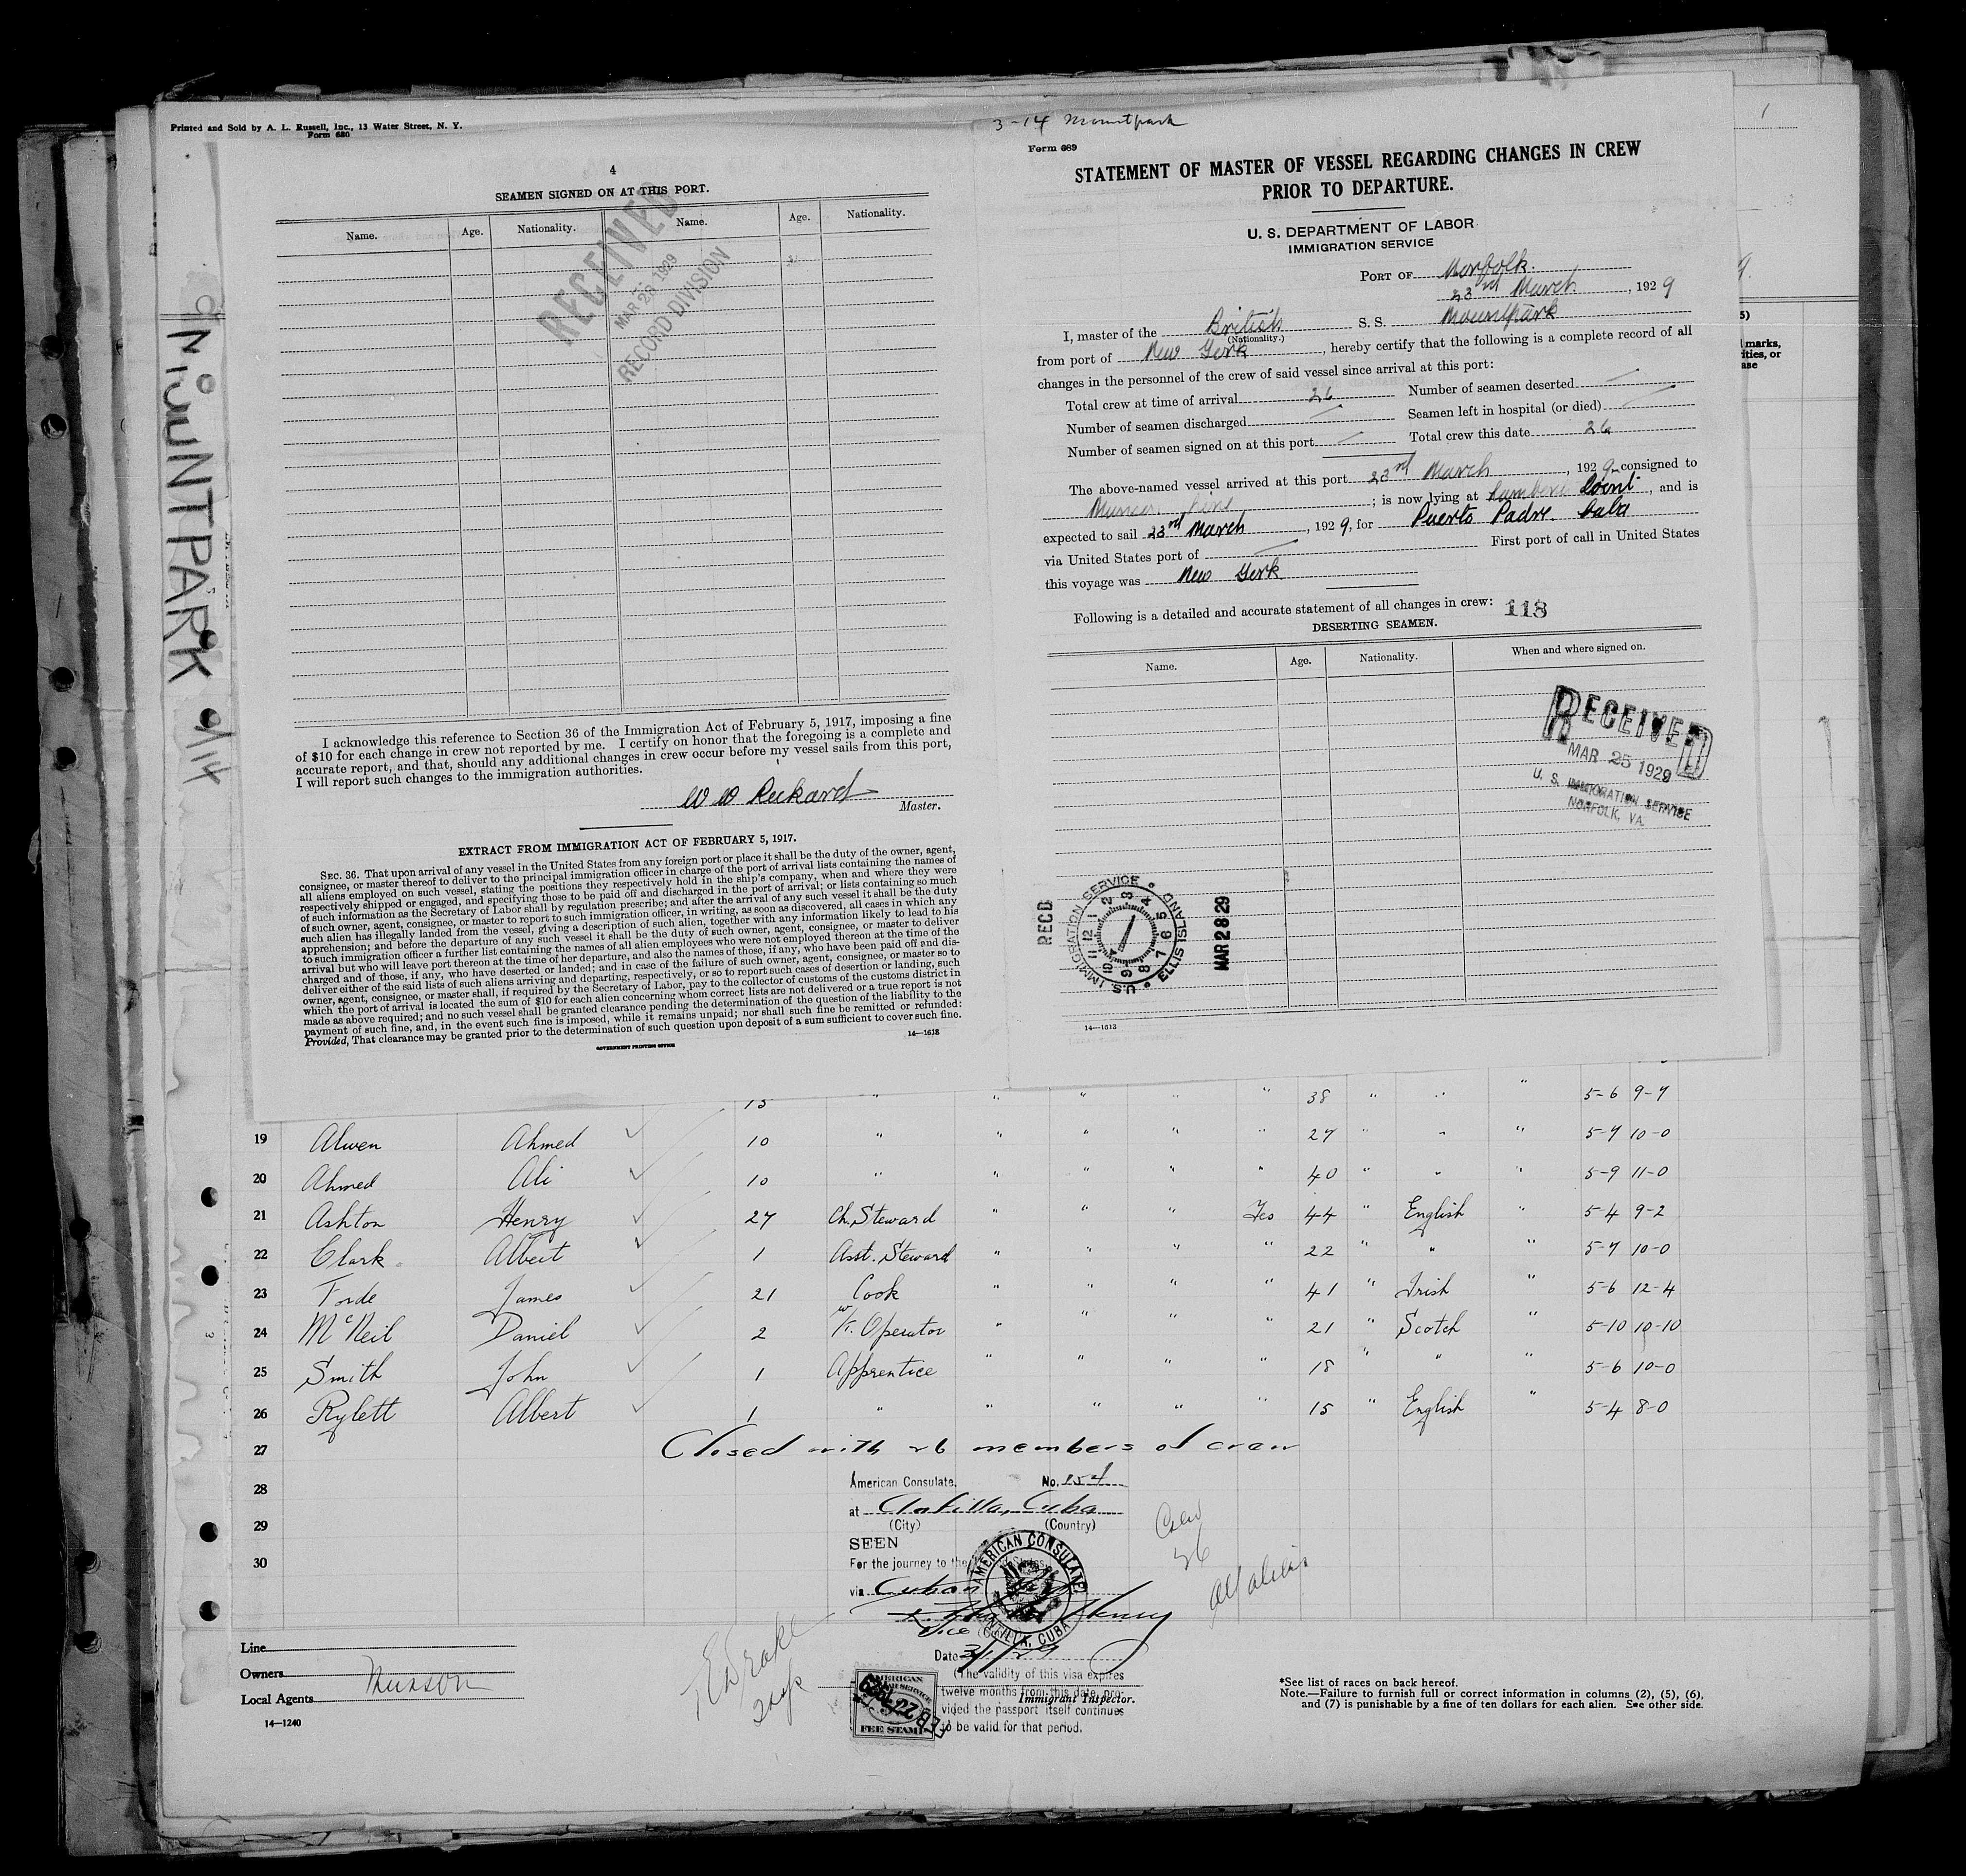 Printed and Sold by A. L. Russell, Inc., 13 Water Street, N. Y.
Form 680
MOUNTPARK 9/14
4
SEAMEN SIGNED ON AT THIS PORT.
Name. Age. Nationality. Name. Age. Nationality.
RECEIVED
MAR 28 1929
RECORD DIVISION
I acknowledge this reference to Section 36 of the Immigration Act of February 5, 1917, imposing a fine
of $10 for each change in crew not reported by me. I certify on honor that the foregoing is a complete and
accurate report, and that, should any additional changes in crew occur before my vessel sails from this port,
I will report such changes to the immigration authorities.
W W Reckard
Master.
EXTRACT FROM IMMIGRATION ACT OF FEBRUARY 5, 1917.
SEC. 36. That upon arrival of any vessel in the United States from any foreign port or place it shall be the duty of the owner, agent,
consignee, or master thereof to deliver to the principal immigration officer in charge of the port of arrival lists containing the names of
all aliens employed on such vessel, stating the positions they respectively hold in the ship's company, when and where they were
respectively shipped or engaged, and specifying those to be paid off and discharged in the port of arrival; or lists containing so much
of such information as the Secretary of Labor shall by regulation prescribe; and after the arrival of any such vessel it shall be the duty
of such owner, agent, consignee, or master to report to such immigration officer, in writing, as soon as discovered, all cases in which any
such alien has illegally landed from the vessel, giving a description of such alien, together with any information likely to lead to his
apprehension; and before the departure of any such vessel it shall be the duty of such owner, agent, consignee, or master to deliver
to such immigration officer a further list containing the names of all alien employees who were not employed thereon at the time of the
arrival but who will leave port thereon at the time of her departure, and also the names of those, if any, who have been paid off and dis-
charged and of those, if any, who have deserted or landed; and in case of the failure of such owner, agent, consignee, or master so to
deliver either of the said lists of such aliens arriving and departing, respectively, or so to report such cases of desertion or landing, such
owner, agent, consignee, or master shall, if required by the Secretary of Labor, pay to the collector of customs of the customs district in
which the port of arrival is located the sum of $10 for each alien concerning whom correct lists are not delivered or a true report is not
made as above required; and no such vessel shall be granted clearance pending the determination of the question of the liability to the
payment of such fine, and, in the event such fine is imposed, while it remains unpaid; nor shall such fine be remitted or refunded:
Provided, That clearance may be granted prior to the determination of such question upon deposit of a sum sufficient to cover such fine.
14—1613
GOVERNMENT PRINTING OFFICE
3-14 Mountpark
Form 689
STATEMENT OF MASTER OF VESSEL REGARDING CHANGES IN CREW
PRIOR TO DEPARTURE.
U. S. DEPARTMENT OF LABOR
IMMIGRATION SERVICE
PORT OF Norfolk.
23rd March, 1929
I, master of the British S. S. Mountpark
(Nationality.)
from port of New York, hereby certify that the following is a complete record of all
changes in the personnel of the crew of said vessel since arrival at this port:
Total crew at time of arrival 26 Number of seamen deserted —
Number of seamen discharged — Seamen left in hospital (or died) —
Number of seamen signed on at this port — Total crew this date 26
The above-named vessel arrived at this port 23rd March, 1929 consigned to
Munson Line; is now lying at Lamberts Point, and is
expected to sail 23rd March, 1929, for Puerto Padre. Cuba
via United States port of — First port of call in United States
this voyage was New York
Following is a detailed and accurate statement of all changes in crew: 118
DESERTING SEAMEN.
Name. Age. Nationality. When and where signed on.
RECEIVED
MAR 25 1929
U. S. IMMIGRATION SERVICE
NORFOLK, VA.
RECD
U.S. IMMIGRATION SERVICE • ELLIS ISLAND
1 2 3 4 5 6 7 8 9 10 11 12
MAR 28 29
14—1613
1
5)
marks,
ities, or
ase
15 " " " " " 38 " " " 5-6 9-7
19 Alwen Ahmed 10 " " " " " 27 " " " 5-7 10-0
20 Ahmed Ali 10 " " " " " 40 " " " 5-9 11-0
21 Ashton Henry 27 Ch. Steward " " " Yes 44 " English " 5-4 9-2
22 Clark Albert 1 Asst. Steward " " " " 22 " " " 5-7 10-0
23 Forde James 21 Cook " " " " 41 " Irish " 5-6 12-4
24 McNeil Daniel 2 W/T. Operator " " " " 21 " Scotch " 5-10 10-10
25 Smith John 1 Apprentice " " " " 18 " " " 5-6 10-0
26 Rylett Albert 1 " " " " " 15 " English " 5-4 8-0
27 Closed with 26 members of crew
28
29
30
American Consulate, No. 154
at Antilla, Cuba
(City) (Country)
SEEN
For the journey to the States
via Cuban
Henry
Vice
AMERICAN CONSULATE
ANTILLA, CUBA
Date 3/1/29
(The validity of this visa expires
twelve months from this date, pro-
vided the passport itself continues
to be valid for that period.
Immigrant Inspector.
AMERICAN
FEE STAMP
Crew
26
all aliens
Line
Owners
Munson
Local Agents
14—1240
*See list of races on back hereof.
Note.—Failure to furnish full or correct information in columns (2), (5), (6),
and (7) is punishable by a fine of ten dollars for each alien. See other side.